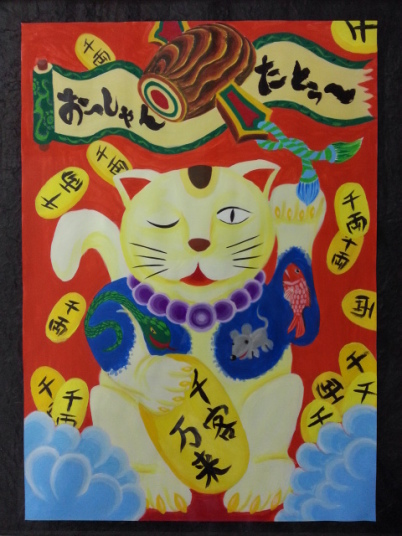 おっしゃん
たとぅ〜
千両
千両
千両
千両
千両
千両
千客
万来
千
千両
両
千両
千
千